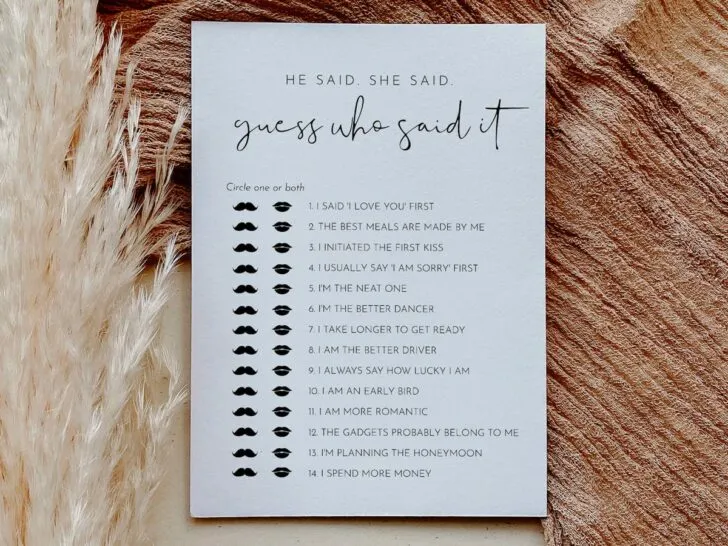 HE SAID. SHE SAID.
guess who said it
Circle one or both
1. I SAID 'I LOVE YOU' FIRST
2. THE BEST MEALS ARE MADE BY ME
3. I INITIATED THE FIRST KISS
4. I USUALLY SAY 'I AM SORRY' FIRST
5. I'M THE NEAT ONE
6. I'M THE BETTER DANCER
7. I TAKE LONGER TO GET READY
8. I AM THE BETTER DRIVER
9. I ALWAYS SAY HOW LUCKY I AM
10. I AM AN EARLY BIRD
11. I AM MORE ROMANTIC
12. THE GADGETS PROBABLY BELONG TO ME
13. I'M PLANNING THE HONEYMOON
14. I SPEND MORE MONEY